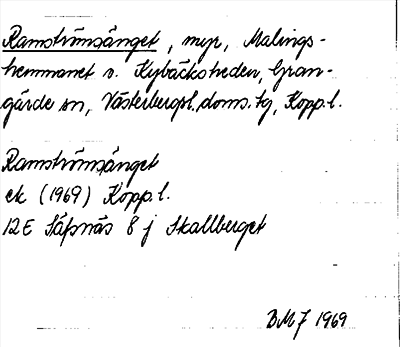 Ramströmsänget, myr, Malings-
hemmanet v. Kybäcksheden, Gran-
gärde sn, Västerbergsl. doms. tg, Kopp. l.
Ramströmsänget
ek (1969) Kopp. l.
12E Säfsnäs 8 j Skallberget
BMJ 1969